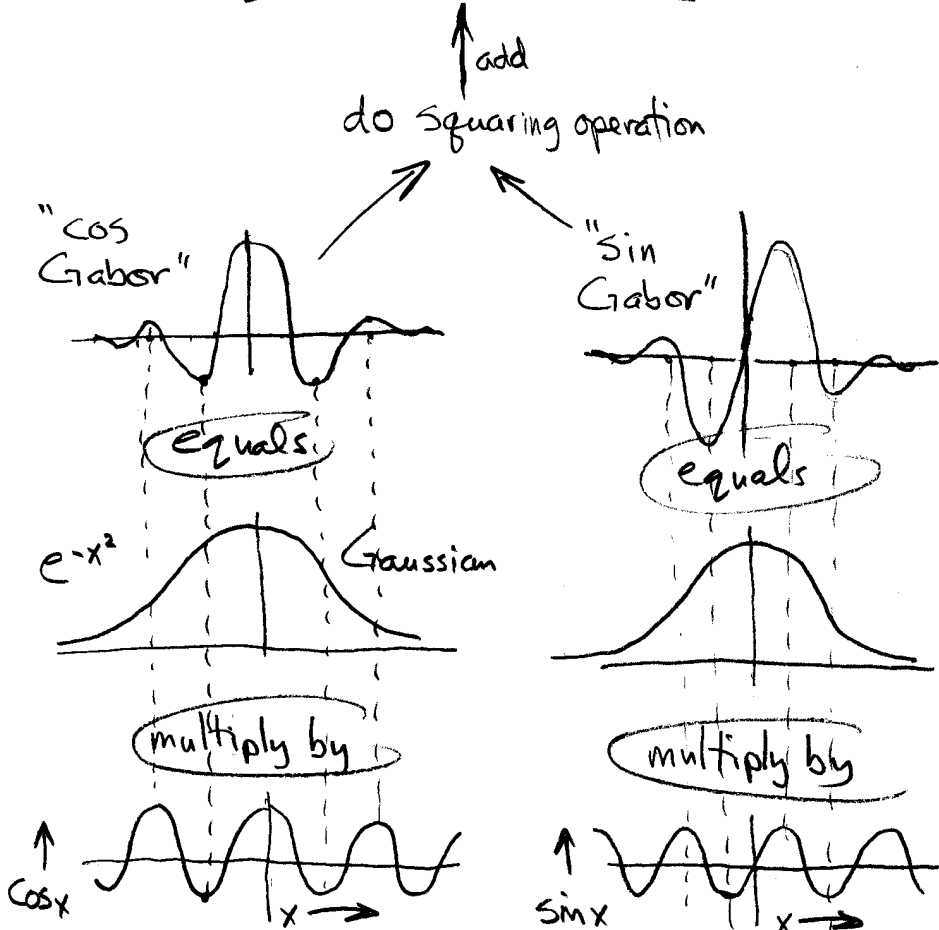 add
do squaring operation
"cos
Gabor"
"sin
Gabor"
equals
equals
e-x²
Gaussian
multiply by
multiply by
cosx
x
sinx
x